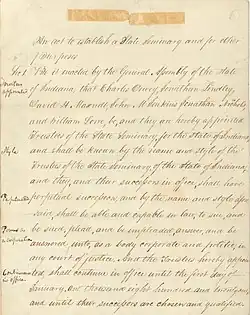 An act to establish a State Seminary, and for other
purposes
Sec 1
Be it enacted by the General Assembly of the State
Trustees appointed
of Indiana, that Charles Dewey, Jonathan Lindley,
David H. Maxwell, John M. Jenkins, Jonathan Nichols
and William Lowe, be, and they are hereby appointed
Trustees of the State Seminary, for the State of Indiana,
Style
and shall be known by the name and style of the
Trustees of the State Seminary of the State of Indiana,
and they, and their successors in office, shall have
Perpetuated
perpetual succession, and by the name and style afore-
said, shall be able and capable in law, to sue, and
Powers as a corporation
be sued, plead, and be impleaded, answer, and be
answered unto, as a body corporate and politic, in
any court of justice. And the Trustees hereby appoin-
Continuance in office
ted shall continue in office until the first day of
January, one thousand eight hundred and twenty one,
and until their successors are chosen and qualified.